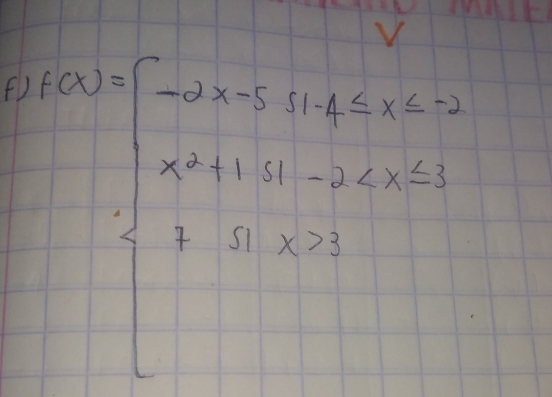 f) f(x) = { -2x-5 si -4 ≤ x ≤ -2
x² + 1 si -2 < x ≤ 3
7 si x > 3